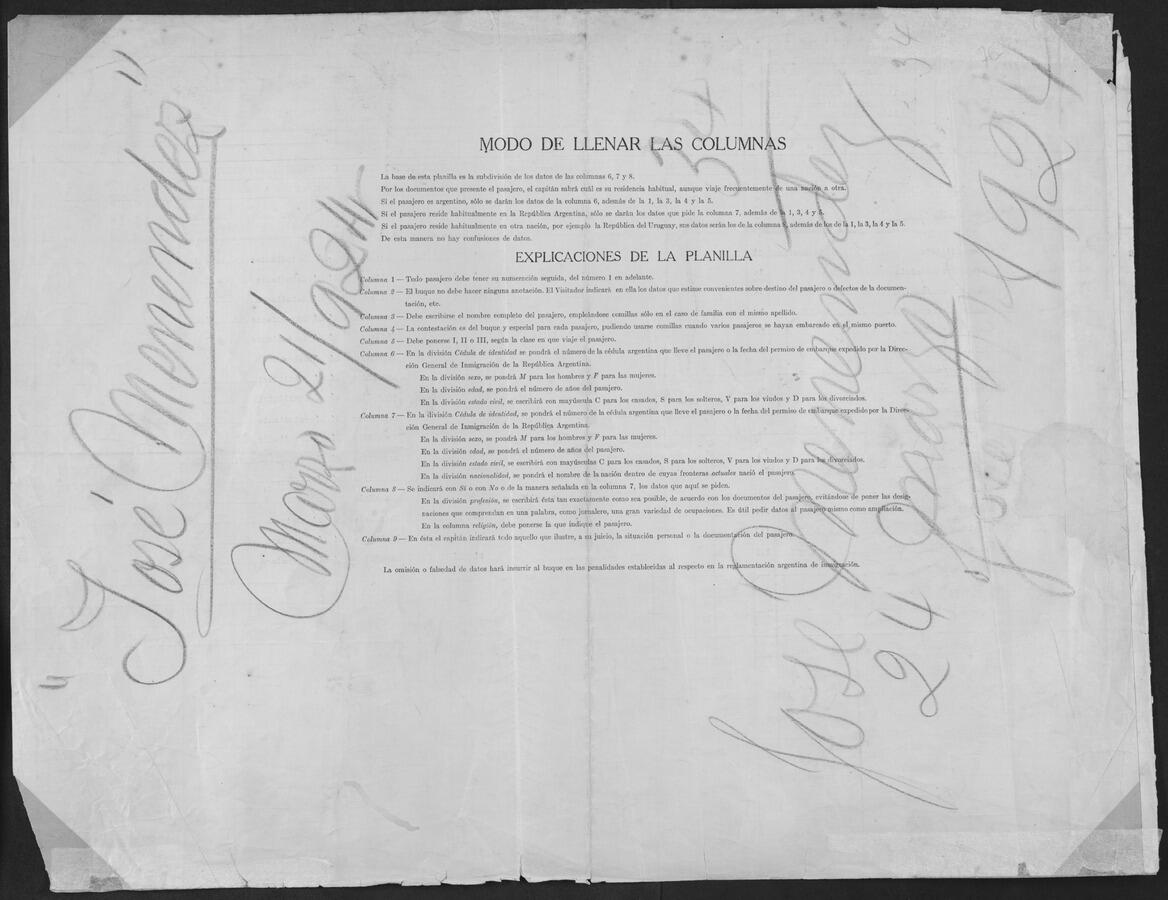 MODO DE LLENAR LAS COLUMNAS
La base de esta planilla es la subdivisión de los datos de las columnas 6, 7 y 8.
Por los documentos que presente el pasajero, el capitán sabrá cuál es su residencia habitual, aunque viaje frecuentemente de una nación a otra.
Si el pasajero es argentino, sólo se darán los datos de la columna 6, además de la 1, la 3, la 4 y la 5.
Si el pasajero reside habitualmente en la República Argentina, sólo se darán los datos que pide la columna 7, además de la 1, 3, 4 y 5.
Si el pasajero reside habitualmente en otra nación, por ejemplo la República del Uruguay, sus datos serán los de la columna 8, además de los de la 1, la 3, la 4 y la 5.
De esta manera no hay confusiones de datos.
EXPLICACIONES DE LA PLANILLA
Columna 1 — Todo pasajero debe tener su numeración seguida, del número 1 en adelante.
Columna 2 — El buque no debe hacer ninguna anotación. El Visitador indicará en ella los datos que estime convenientes sobre destino del pasajero o defectos de la documen-
tación, etc.
Columna 3 — Debe escribirse el nombre completo del pasajero, empleándose comillas sólo en el caso de familia con el mismo apellido.
Columna 4 — La contestación es del buque y especial para cada pasajero, pudiendo usarse comillas cuando varios pasajeros se hayan embarcado en el mismo puerto.
Columna 5 — Debe ponerse I, II o III, según la clase en que viaje el pasajero.
Columna 6 — En la división Cédula de identidad se pondrá el número de la cédula argentina que lleve el pasajero o la fecha del permiso de embarque expedido por la Direc-
ción General de Inmigración de la República Argentina.
En la división sexo, se pondrá M para los hombres y F para las mujeres.
En la división edad, se pondrá el número de años del pasajero.
En la división estado civil, se escribirá con mayúscula C para los casados, S para los solteros, V para los viudos y D para los divorciados.
Columna 7 — En la división Cédula de identidad, se pondrá el número de la cédula argentina que lleve el pasajero o la fecha del permiso de embarque expedido por la Direc-
ción General de Inmigración de la República Argentina.
En la división sexo, se pondrá M para los hombres y F para las mujeres.
En la división edad, se pondrá el número de años del pasajero.
En la división estado civil, se escribirá con mayúsculas C para los casados, S para los solteros, V para los viudos y D para los divorciados.
En la división nacionalidad, se pondrá el nombre de la nación dentro de cuyas fronteras actuales nació el pasajero.
Columna 8 — Se indicará con Sí o con No o de la manera señalada en la columna 7, los datos que aquí se piden.
En la división profesión, se escribirá ésta tan exactamente como sea posible, de acuerdo con los documentos del pasajero, evitándose de poner las desig-
naciones que comprendan en una palabra, como jornalero, una gran variedad de ocupaciones. Es útil pedir datos al pasajero mismo como ampliación.
En la columna religión, debe ponerse la que indique el pasajero.
Columna 9 — En ésta el capitán indicará todo aquello que ilustre, a su juicio, la situación personal o la documentación del pasajero.
La omisión o falsedad de datos hará incurrir al buque en las penalidades establecidas al respecto en la reglamentación argentina de inmigración.
"José Menendez"
Marzo 21/924
34
Jose Menendez
24
1924
34